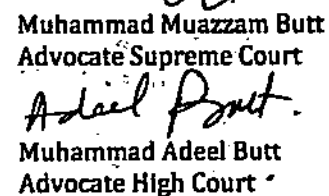 Muhammad Muazzam Butt
Advocate Supreme Court
Adeel Butt.
Muhammad Adeel Butt
Advocate High Court